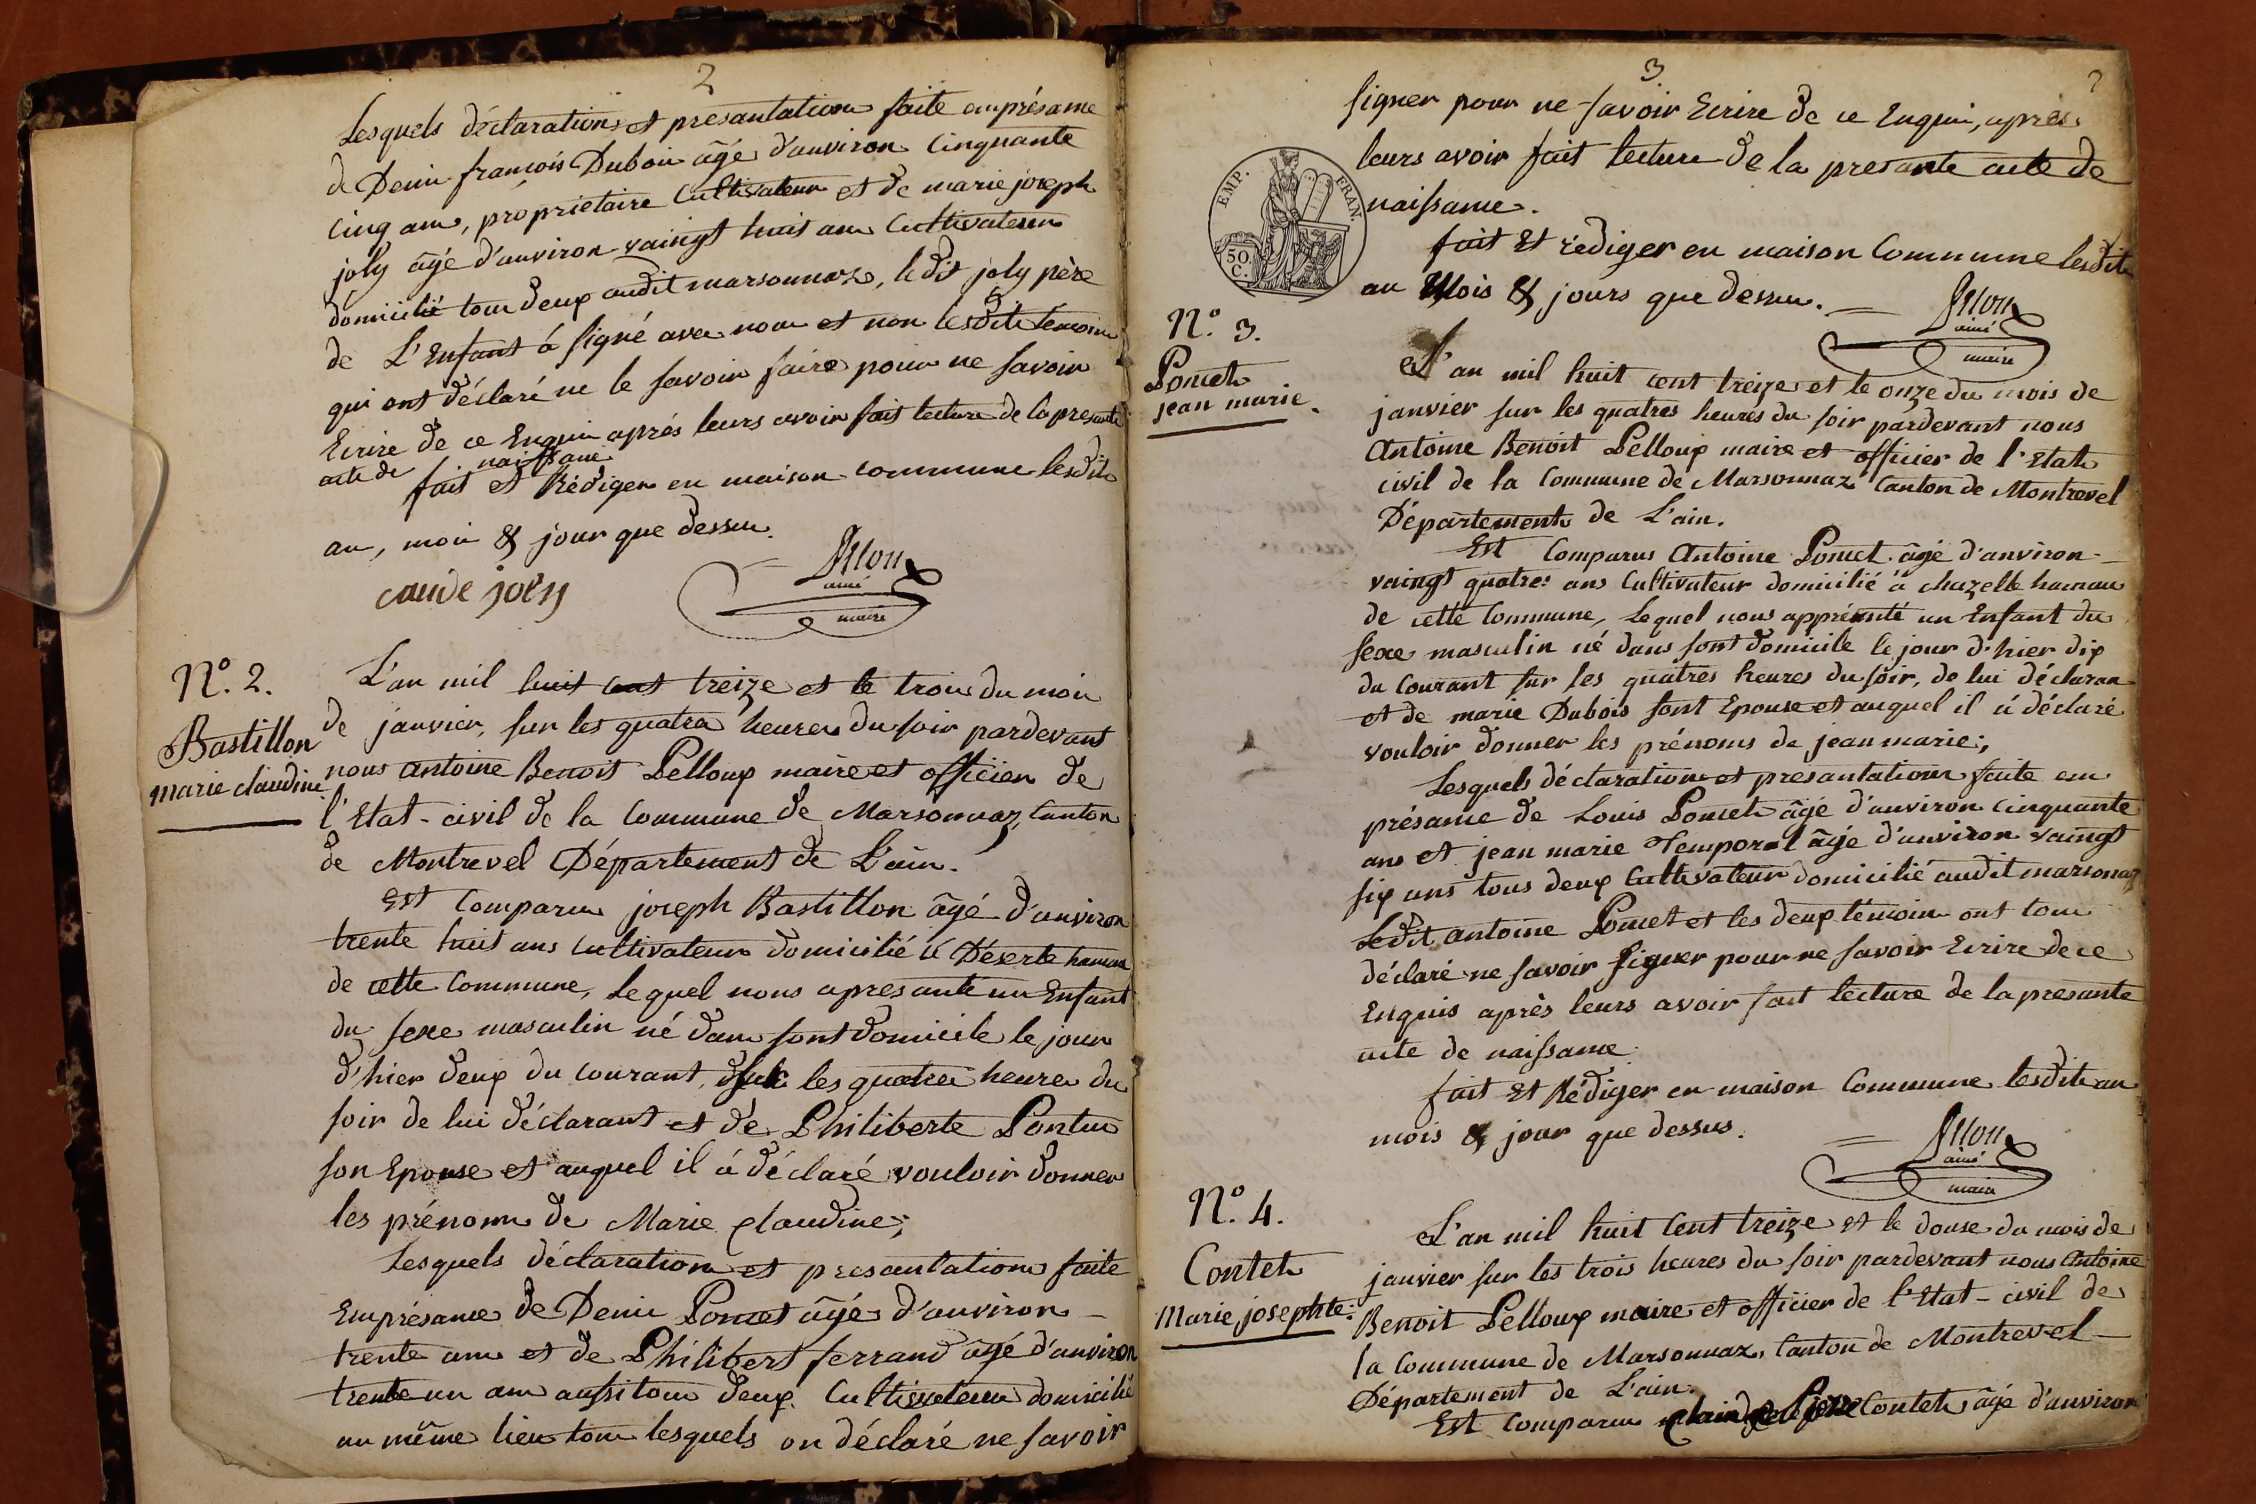 2
Lesquels déclarations et presantation faite emprésame
de Denis françois Dubois âgé d'anviron Cinquante
Cinq ans, propriétaire Cultivateur et de marie joseph
joly âgé d'anviron vaingt huit ans Cultivateurs
domicilié tous deux audit marsonnaz, le dit joly père
de L'Enfant à signé avec nous et non lesdits témoins
qui ont déclaré ne le savoir faire pour ne savoir
Ecrire de ce Enquis après leurs avoir fait lecture de la presante
acte de naissance
fait et Rédiger en maison commune lesdits
an, mois & jour que dessus.
caude joly
ainé
maire
N.º 2.
Bastillon
marie claudine
L'an mil huit cent treize et le trois du mois
de janvier, sur les quatre heures du soir pardevant
nous antoine Benoit Pelloux maire et officier de
l'Etat-civil de la Commune de Marsonnaz, Canton
de Montrevel Département de L'ain.
Est Comparus joseph Bastillon âgé d'anviron
trente huit ans cultivateur domicilié à Déserte hamau
de cette Commune, Lequel nous apresanté un Enfant
du sexe masculin né dans sont domicile le jour
d'hier deux du courant, sur les quatres heures du
soir de lui déclarant et de Philiberte Pontus
son Epouse et auquel il à déclaré vouloir donner
les prénoms de Marie Claudine;
Lesquels déclaration et presantations faite
Emprésame de Denis Pomet âgé d'anviron
trente ans et de Philibert ferrand âgé d'anviron
trente un ans aussi tous deux Cultivateurs domicilié
au même lieu tous lesquels on déclaré ne savoir
3
signer pour ne savoir Ecrire de ce Enquis, après
leurs avoir fait lecture de la presante acte de
naissance.
EMP. FRAN.
50.
C.
fait Et rédiger en maison Commune lesdits
an Mois & jours que dessus.
ainé
maire
N.º 3.
Pomet
jean marie.
L'an mil huit cent treize et le onze du mois de
janvier sur les quatres heures du soir pardevant nous
Antoine Benoit Pelloux maire et officier de l'Etat
civil de la Commune de Marsonnaz Canton de Montrevel
Département de L'ain.
Est Comparus Antoine Pomet âgé d'anviron
vaingt quatre ans Cultivateur domicilié à chazelle hamau
de cette Commune, Lequel nous apprésenté un Enfant du
sexe masculin né dans sont domicile le jour d'hier dix
du Courant sur les quatres heures du soir, de lui déclaran
et de marie Dubois sont Epouse et auquel il à déclaré
vouloir donner les prénoms de jean marie;
Lesquels déclaration et presantation faite en
présame de Louis Pomet âgé d'anviron cinquante
ans et jean marie Temporal âgé d'anviron vaingt
six ans tous deux Cultivateur domicilié audit marsonnaz
Ledit antoine Pomet et les deux témoins ont tous
déclaré ne savoir signer pour ne savoir Ecrire de ce
Enquis après leurs avoir fait lecture de la presante
acte de naissame.
fait Et Rédiger en maison Commune lesdits an
mois & jour que dessus.
ainé
maire
N.º 4.
Contet
Marie josephte.
L'an mil huit Cent treize et le douse du mois de
janvier sur les trois heures du soir pardevant nous Antoine
Benoit Pelloux maire et officier de l'Etat-civil de
la Commune de Marsonnaz, Canton de Montrevel
Département de L'ain.
Est Comparus Contet, âgé d'anviron